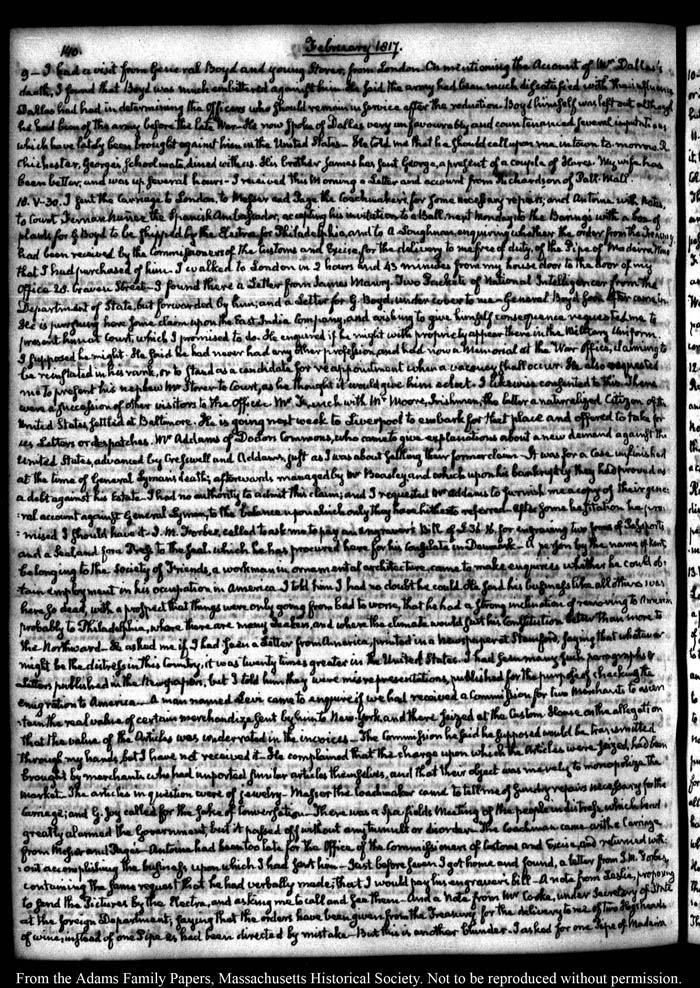 140.
February 1817.
9 — I had a visit from General Boyd and young Storer, from London. On mentioning the Account of Mr Dallas's
death, I found that Boyd was much embittered against him. He said the army had been much dissatisfied with the influence
Dallas had had in determining the Officers who should remain in service after the reduction. Boyd himself was left out although
he had been of the army before the late War. He now spoke of Dallas very unfavourably and countenanced several imputations
which have lately been brought against him in the United States — He told me that he should call upon me in town to-morrow.
Chichester, George's Schoolmate, dined with us. His brother James has sent George, a present of a couple of Hares. My wife has
been better, and was up several hours — I received this Morning a Letter and account from Richardson of Pall-Mall.
10. V-30. I sent the Carriage to London, to Messer and Page the Coachmakers, for some necessary repairs; and Antoine with Notes,
to Count Fernan Nunez the Spanish Ambassador, accepting his invitation to a Ball next Monday, to the Barings with a box of
plants for G Boyd to be shipped by the Electra, for Philadelphia, and to a Loughnan, enquiring whether the order from the Treasury
had been received by the Commissioners of the Customs and Excise, for the delivery to me free of duty, of the Pipe of Madeira Wine
that I had purchased of him. I walked to London in 2 hours and 45 minutes from my house door to the door of my
Office 28. Craven Street — I found there a Letter from James Maury. Two Packets of National Intelligencer from the
Department of State, but forwarded by him; and a Letter for G. Boyd, under cover to me — General Boyd soon after came in.
He is pursuing here some claim upon the East India Company, and wishing to give himself consequence requested me to
present him at Court, which I promised to do. He enquired if he might with propriety appear there in the Military Uniform.
I supposed he might. He said he had never had any other profession, and had now a Memorial at the War Office, claiming to
be reinstated in his rank, or to stand as a candidate for reappointment when a vacancy shall occur. He also requested
me to present his nephew Mr Storer to Court, as he thought it would give him eclat. I likewise consented to this. There
were a succession of other visitors to the Office. Mr French, with Mr Moore, Irishmen, the latter a naturalized Citizen of the
United States, settled at Baltimore. He is going next week to Liverpool to embark for that place and offered to take for
us Letters or despatches. Mr Addams of Doctors Commons, who came to give explanations about a new demand against the
United States, advanced by Creswell and Addams, just as I was about settling their former claim. It was for a case unfinished
at the time of General Lyman's death; afterwards managed by Mr Beasley and which upon his bankruptcy they had proved as
a debt against his Estate. I had no authority to admit this claim; and I requested Mr Addams to furnish me a copy of their gene-
:ral account against General Lyman, to the balance upon which only they have hitherto referred. After some hesitation he pro:
:mised I should have it. J. M. Forbes, called to ask me to pay an engraver's Bill of £36.16. for engraving two forms of Passports
and a Seal, and for a Press to the Seal which he has procured here for his Consulate in Denmark. A person by the name of Kent,
belonging to the Society of Friends, a workman in ornamental architecture, came to make enquiries whether he could ob:
tain employment in his occupation in America. I told him I had no doubt he could. He said his business like all others was
here so dead, with a prospect that things were only going from bad to worse, that he had a strong inclination of removing to America
probably to Philadelphia, where there are many Quakers, and where the climate would suit his Constitution better than more to
the Northward. He asked me if I had seen a Letter from America, printed in a Newspaper at Stamford, saying that whatever
might be the distress in this Country, it was twenty times greater in the United States. I had seen many such paragraphs &
Letters published in the Newspapers, but I told him they were misrepresentations, published for the purpose of checking the
emigration to America. A man named Levi came to enquire if we had received a Commission for two Merchants to ascer
:tain the real value of certain merchandize sent by him to New-York, and there seized at the Custom House on the allegation
that the value of the Articles was underrated in the invoices. The Commission he said he supposed would be transmitted
through my hands, but I have not received it. He complained that the charge upon which the Articles were seized, had been
brought by merchants who had imported similar articles themselves, and that their object was merely to monopolize the
market. The articles in question were of jewelry. Messer the Coachmaker came to tell me of sundry repairs necessary for the
Carriage; and G. Joy called for the sake of Conversation. There was a Spa fields Meeting of the people in distress, which had
greatly alarmed the Government, but it passed off without any tumult or disorder. The Coachman came with the Carriage
from Messer and Page's. Antoine had been too late for the Office of the Commissioners of Customs and Excise, and returned with:
:out accomplishing the business upon which I had sent him. Just before seven I got home and found, a letter from J. M. Forbes,
containing the same request that he had verbally made; that I would pay his engraver's bill. A note from Leslie, proposing
to send the Pictures by the Electra, and asking me to call and see them. And a Note from Mr Cooke, under Secretary of State
at the foreign Department; saying that the orders have been given from the Treasury for the delivery to me of two Hogsheads
of wine, instead of one Pipe as had been directed by mistake. But this is another blunder. I asked for one Pipe of Madeira
From the Adams Family Papers, Massachusetts Historical Society. Not to be reproduced without permission.